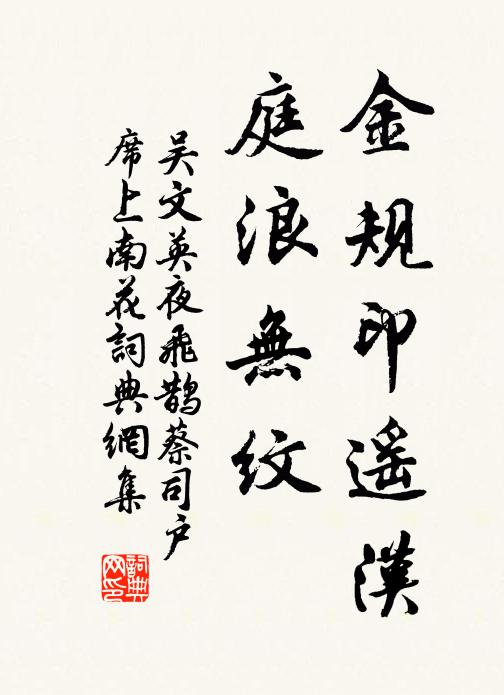 金規印遥漢
庭浪無紋
吴文英夜飛鵲蔡司户
席上南花詞典網集
詞典
网印